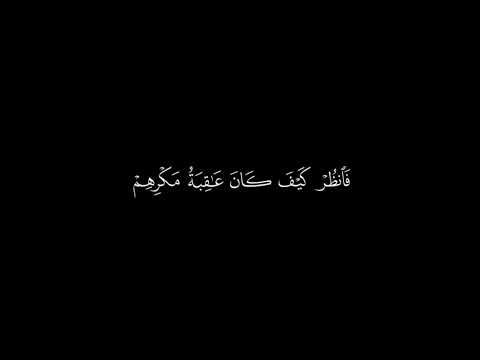 فَٱنظُرْ كَيْفَ كَانَ عَـٰقِبَةُ مَكْرِهِمْ